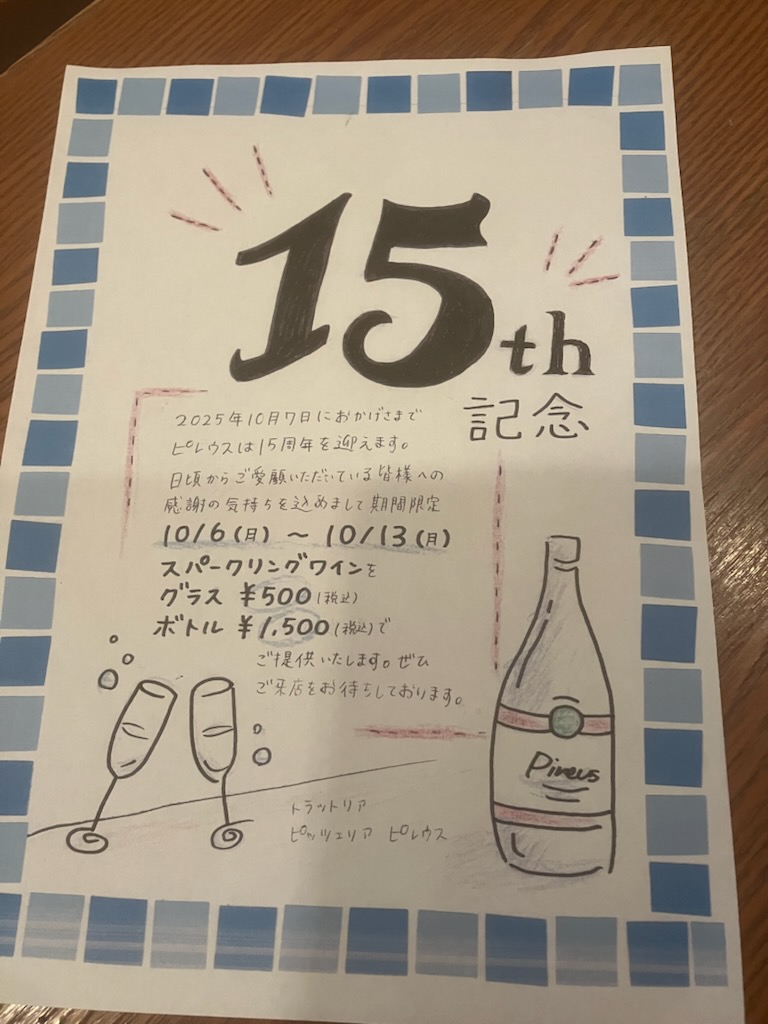 15th
記念
2025年10月7日におかげさまで
ピレウスは15周年を迎えます。
日頃からご愛顧いただいている皆様への
感謝の気持ちを込めまして期間限定
10/6(月) ～ 10/13(月)
スパークリングワインを
グラス ¥500(税込)
ボトル ¥1,500(税込)で
ご提供いたします。ぜひ
ご来店をお待ちしております。
Pireus
トラットリア
ピッツェリア ピレウス